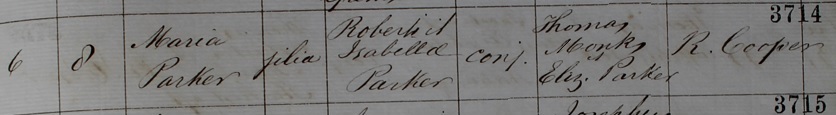 3714
6 8 Maria Parker filia Roberti et Isabella Parker conj. Thomas Monks Eliz. Parker R. Cooper
3715
Josephus